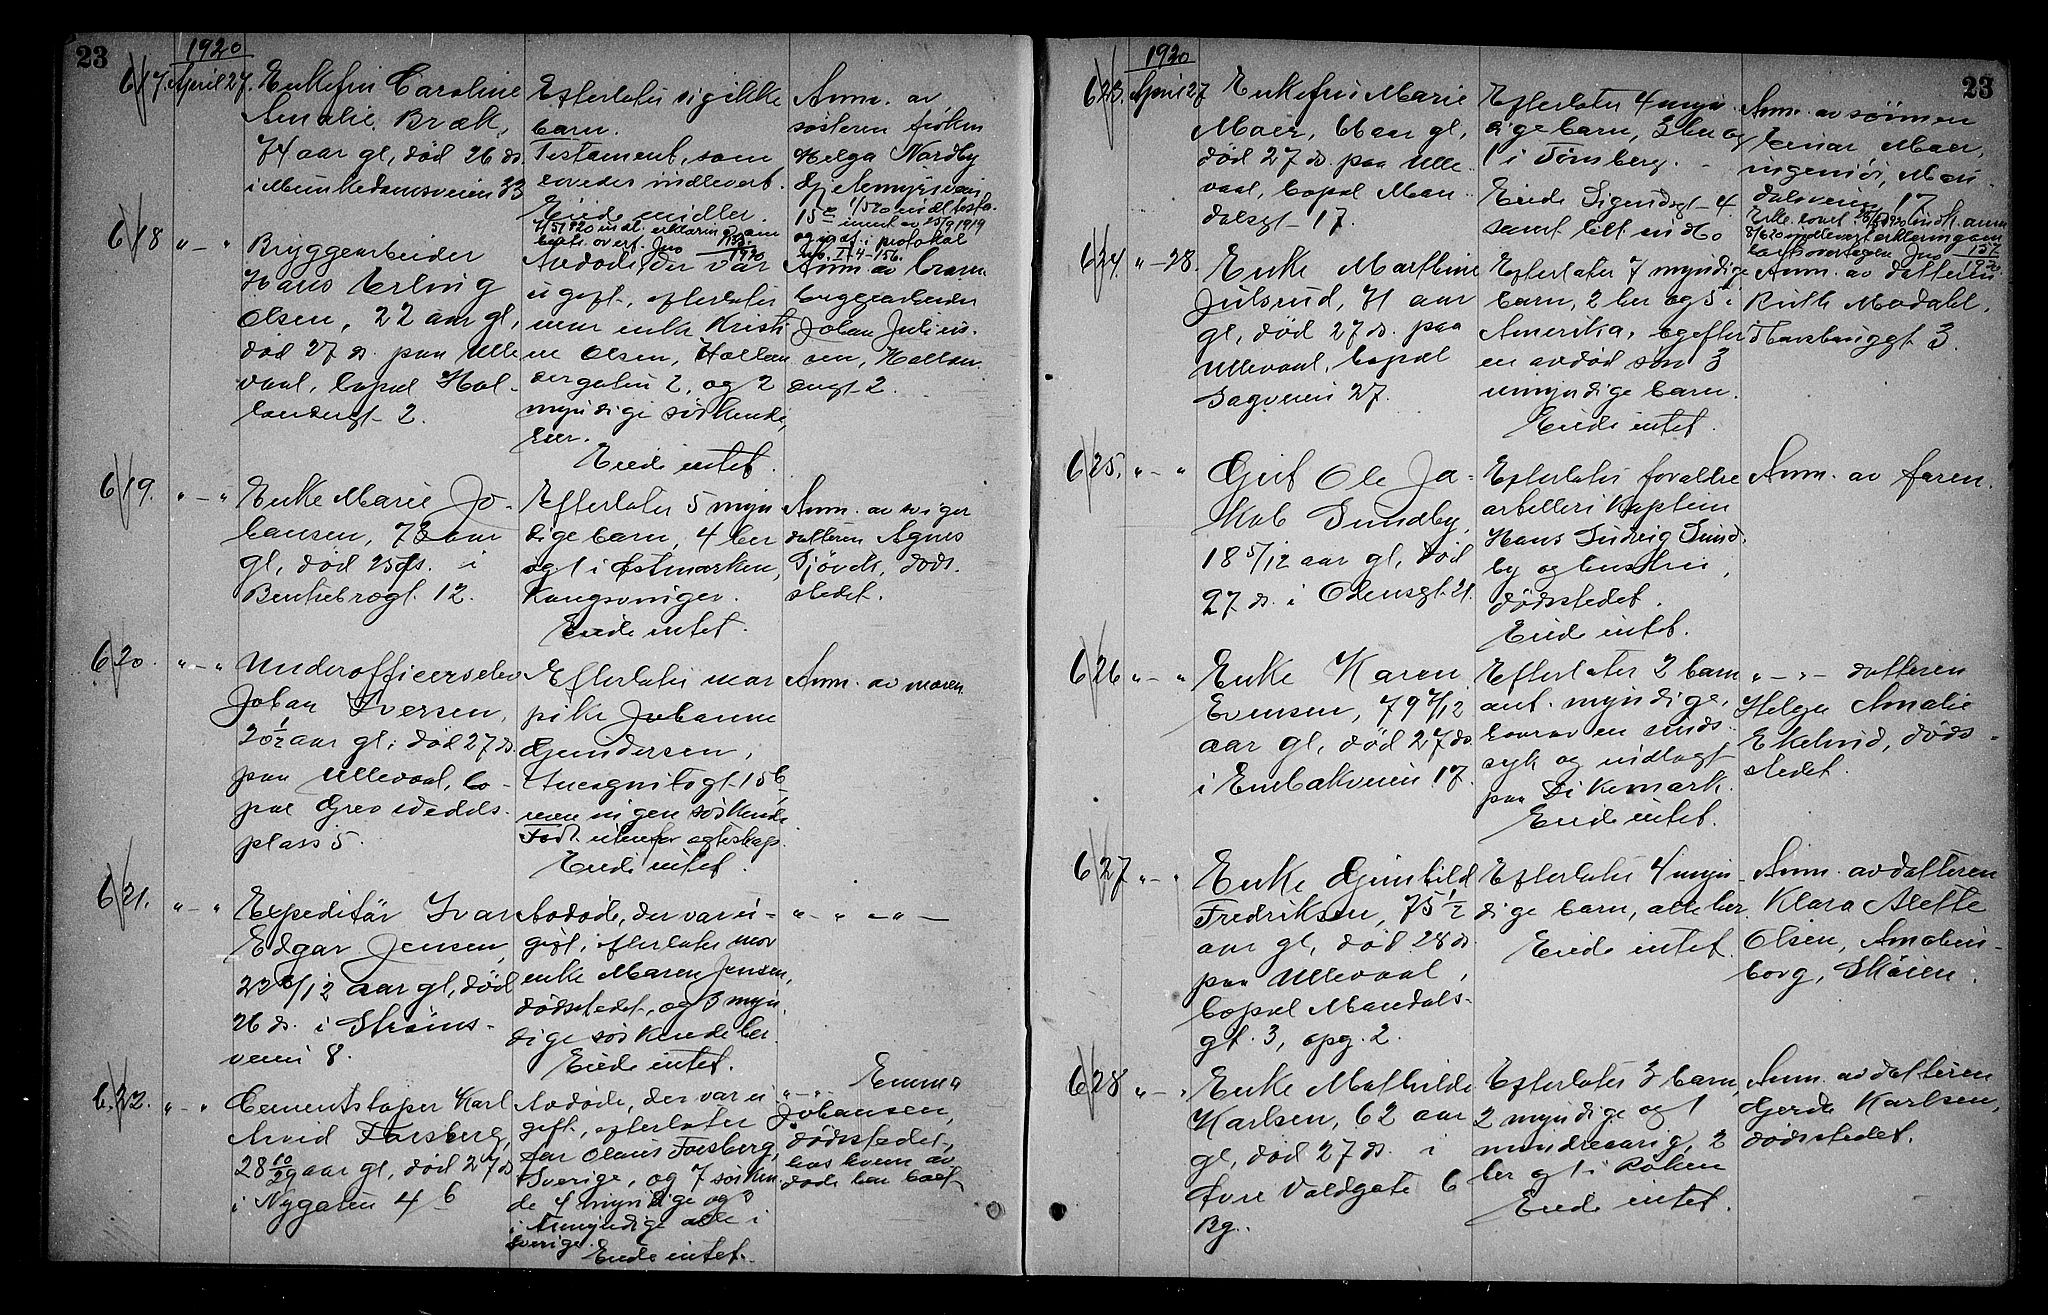 23
1920
617. April 27. Enkefru Caroline
Amalie Bræk,
74 aar gl, død 26 ds.
i Munkedamsveien 33
Efterlater sig ikke
barn.
Testament, som
indlevert.
Eiede midler.
Anm. av
søsteren frøken
Helga Nordby
618 " — " Bryggearbeider
Hans Erling
Olsen, 22 aar gl,
død 27 ds. paa Ulle
vaal, bopæl Hol-
lendergt 2.
Avdøde, der var
ugift, efterlater
mor enke Kristi
ne Olsen, Hollæn
dergaten 2, og 2
myndige søskende,
her.
Eiede intet.
Anm. av
bryggearbeider
Johan Julius-
sen, Hollæn
dergt 2.
619. " — " Enke Marie Jo-
hansen, 73 aar
gl, død 25 ds. i
Bentsebrogt. 12.
Efterlater 5 myn
dige barn, 4 her
og 1 i Østmarken,
Kongsvinger.
Eiede intet.
Anm. av sviger
datteren Agnes
Gjøvik, døds-
stedet.
620. " — " Underofficerselev
Johan Iversen,
20 1/2 aar gl; død 27 ds.
paa Ullevaal, bo-
pæl Grev Wedels
plass 5.
Efterlater mor
pike Johanne
Gundersen,
15 b
men ingen søskende.
Født utenfor egteskap.
Eiede intet.
Anm. av moren
621. " — " Expeditør Ivar
Edgar Jensen,
aar gl, død
26 ds. i Strøms-
veien 8.
Avdøde, der var u-
gift, efterlater mor
enke Maren Jensen,
dødsstedet, og 3 myn
dige søskende her.
Eiede intet.
" — " — " —
622. " — " Cementstøper Karl
Arvid Forsberg,
28 10/29 aar gl, død 27 ds
i Nygaten 4 b
Avdøde, der var u
gift, efterlater
far Olaus Forsberg,
Sverige, og 7 søsken
de 4 myndige og 3
umyndige alle i
Sverige.
Eiede intet.
" — " Emma
Johansen,
dødsstedet,
hos hvem av
døde har bodd
23
1920
623. April 27 Enkefru Marie
Moer, 66 aar gl,
død 27 ds. paa Ulle
vaal, bopæl Man
dalsgt 17.
Efterlater 4 myn
dige barn, 3 her og
1 i Tønsberg.
Eiede
samt litt indbo
Anm. av sønnen
Einar Moer,
ingeniør, Man
17
624. " — 28. Enke Marthine
Julsrud, 71 aar
gl, død 27 ds. paa
Ullevaal, bopæl
Sagveien 27.
Efterlater 7 myndige
barn, 2 her og 5 i
Amerika, og efter
en avdød søn 3
umyndige barn.
Eiede intet.
Anm. av datteren
Ruth Modahl,
3.
625. " — " Gut Ole Ja-
kob Sundby,
18 5/12 aar gl, død
27 ds. i Odensgt. 21.
Efterlater forældre
artilleri kaptein
Hans Ludvig Sund-
by og hustru,
dødsstedet.
Eiede intet.
Anm. av faren.
626 " — " Enke Karen
Evensen, 79 7/12
aar gl, død 27 ds.
i Enebakveien 17.
Efterlater 2 barn
ant. myndige,
hvorav en sinds-
syk og indlagt
paa Dikemark.
Eiede intet.
" — " — datteren
Helga Amalie
Ekelund, døds-
stedet.
627 " — " Enke Gunhild
Fredriksen, 75 1/2
aar gl, død 28 ds.
paa Ullevaal,
bopæl Mandals-
gt. 3, opg. 2.
Efterlater 4 myn-
dige barn, alle her.
Eiede intet.
Anm. av datteren
Klara Alette
Olsen, Amalien-
borg, Skøien.
628 " — " Enke Mathilde
Karlsen, 62 aar
gl, død 27 ds. i
Øvre Voldgate 6
Bg.
Efterlater 3 barn,
2 myndige og 1
mindreaarig, 2
her og 1 i Røken
Eiede intet.
Anm. av datteren
Gerda Karlsen,
dødsstedet.